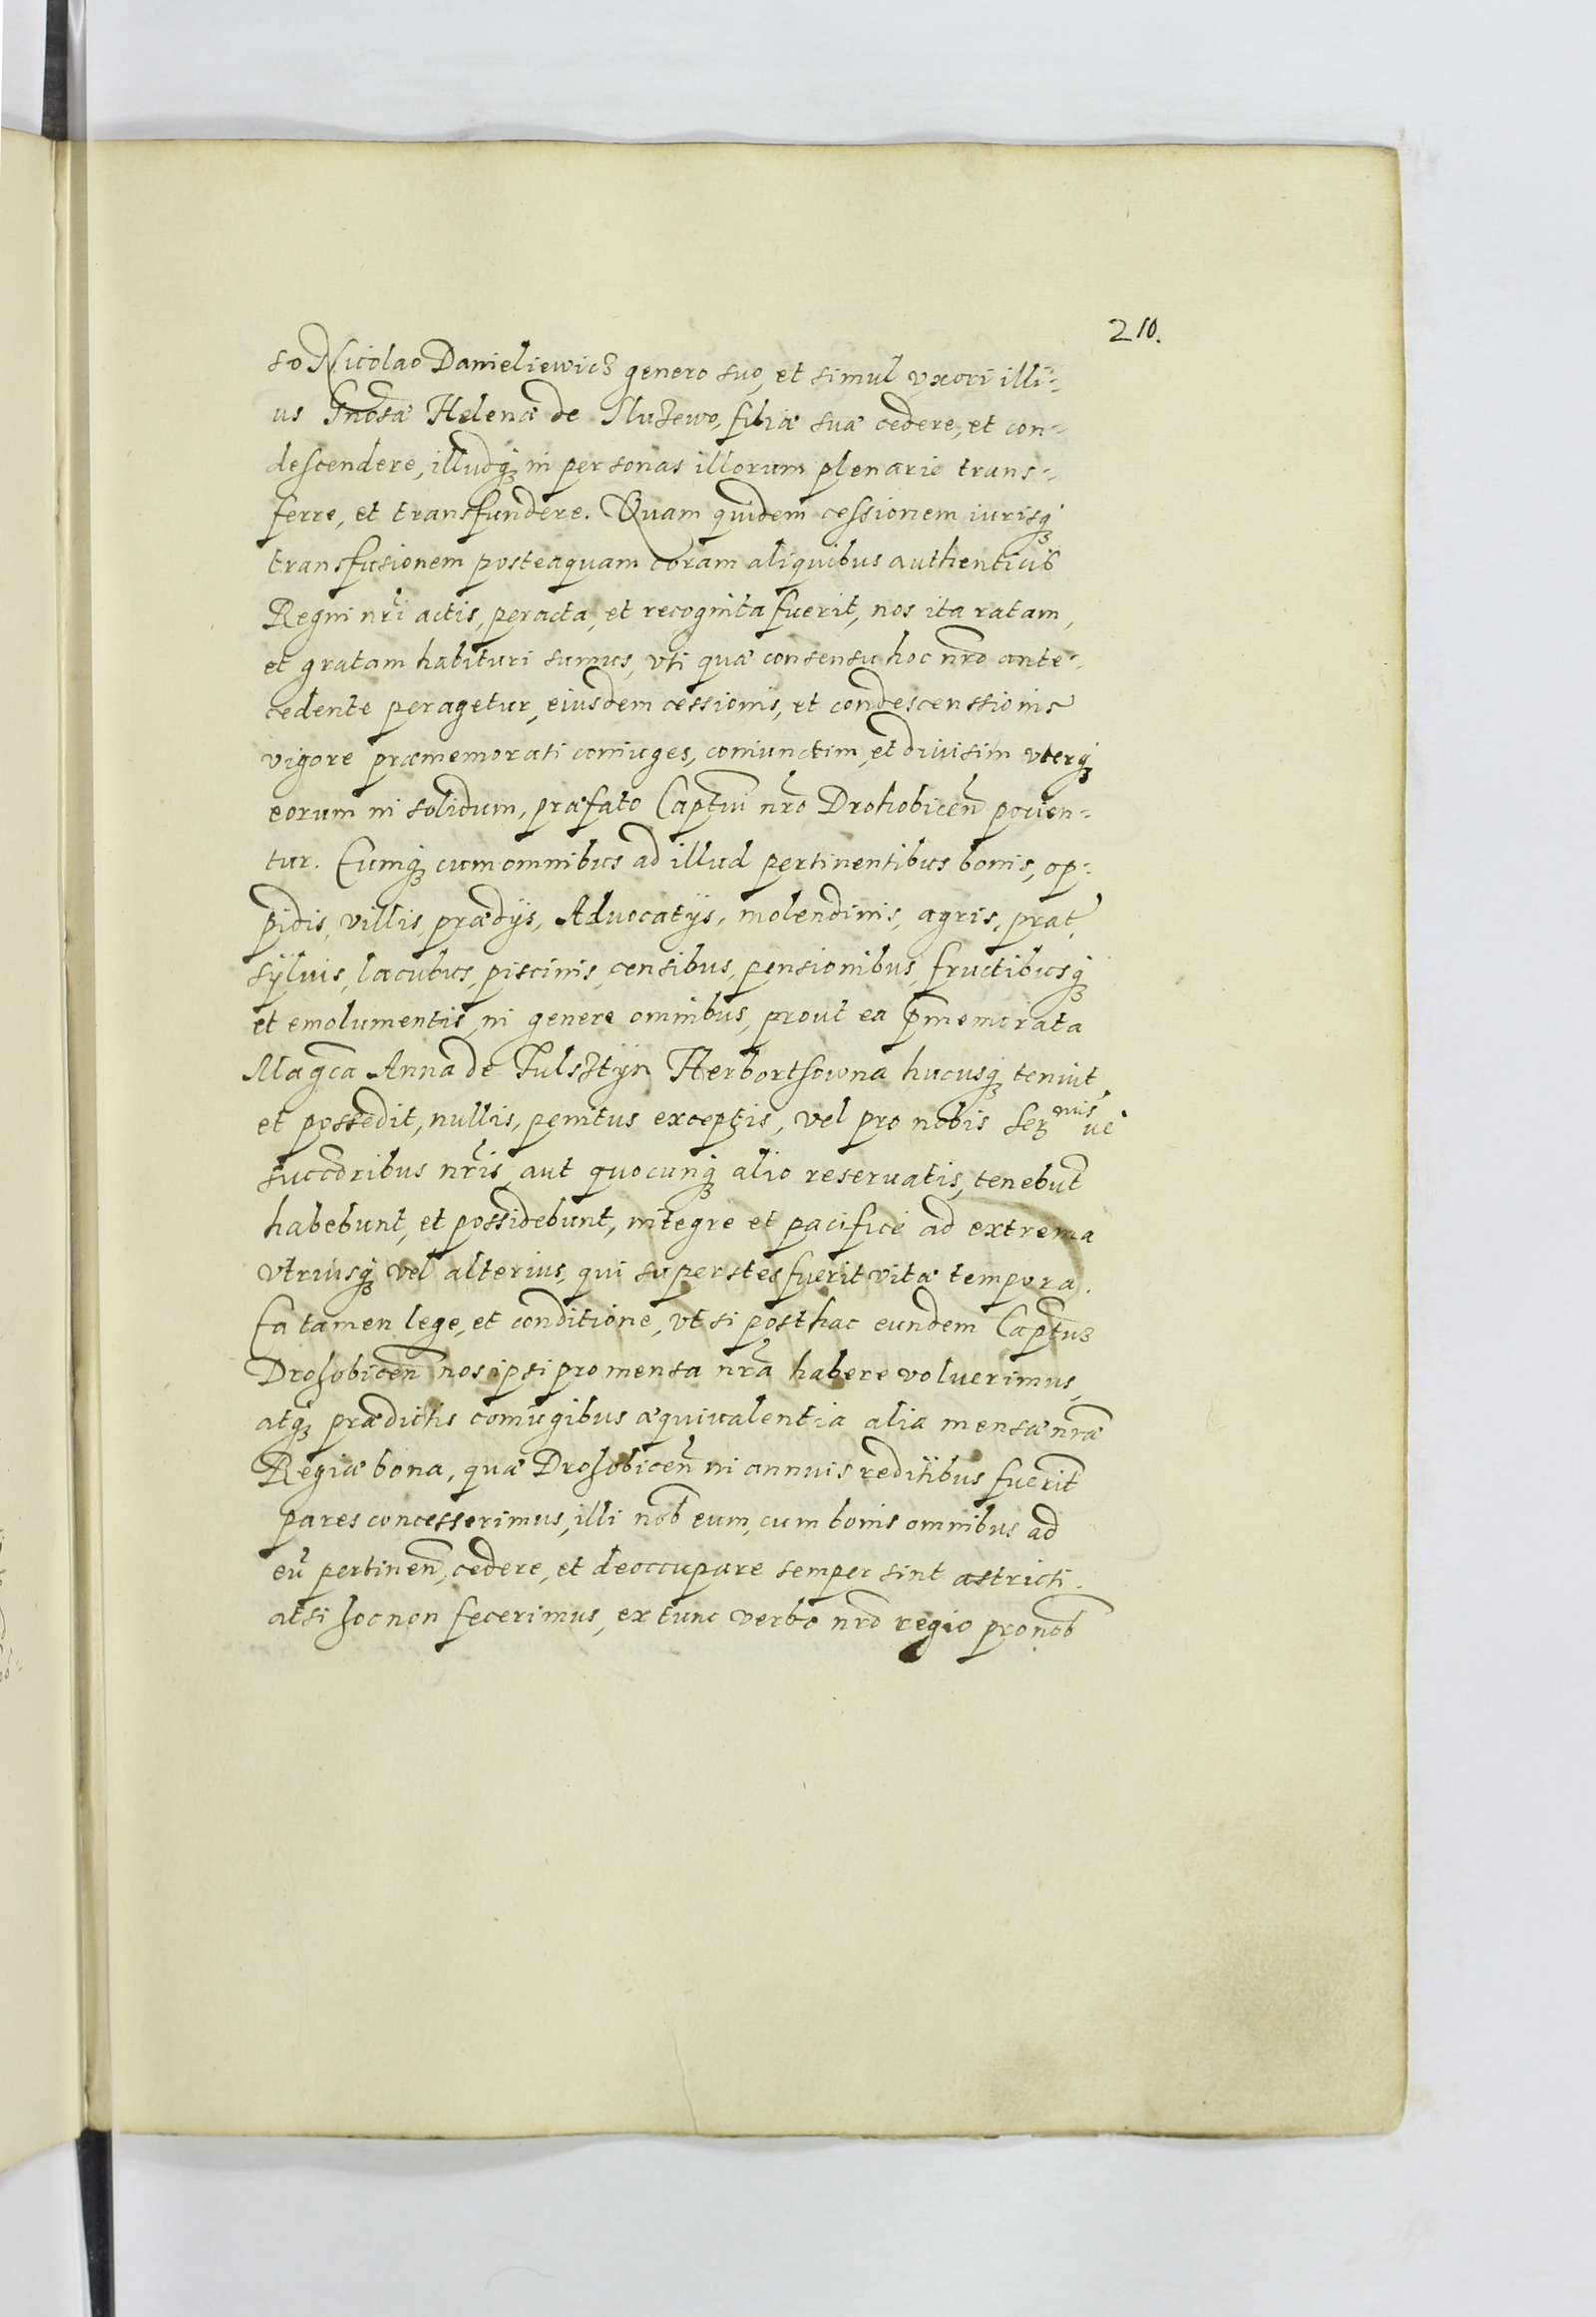 210.
so Nicolao Danieliewicz genero suo, et simul vxori illi-
us Gnosæ Helenæ de Służewo, filiæ suæ cedere, et con-
descendere, illudq; in personas illorum plenarie trans-
ferre, et transfundere. Quam quidem cessionem iurisq;
transfusionem posteaquam coram aliquibus authenticis
Regni nri actis, peracta, et recognita fuerit, nos ita ratam,
et gratam habituri sumus, vti quæ consensu hoc nro ante-
cedente peragetur, eiusdem cessionis, et condescenssionis
vigore præmemorati coniuges, coniunctim, et diuisim vterq;
eorum in solidum, præfato Captui nro Drohobicen pocien-
tur. Eumq; cum omnibus ad illud pertinentibus bonis, op-
pidis, villis, prædijs, Aduocatijs, molendinis, agris, prat,
sÿluis, lacubus, piscinis, censibus, pensionibus, fructibusq;
et emolumentis, in genere omnibus, prout ea pmemorata
Magca Anna de Fulsztÿn Herbortsowna hucusq; tenuit
et possedit, nullis, penitus exceptis, vel pro nobis Ser nis ue
succoribus nris, aut quocunq; alio reseruatis, tenebut
habebunt, et possidebunt, integre et pacifice ad extrema
vtriusq; vel alterius, qui superstes fuerit vitæ tempora.
Ea tamen lege, et conditione, vt si posthac eundem Captus
Drohobicen nos ipsi pro mensa nra habere voluerimus,
atq; prædictis coniugibus æquiualentia alia mensæ nræ
Regiæ bona, quæ Drohobicen in annuis reditibus fuerit
pares concesserimus, illi nob eum, cum bonis omnibus ad
eu pertinen, cedere, et deoccupare semper sint astricti.
at si hoc non fecerimus, ex tunc verbo nro regio pro nob